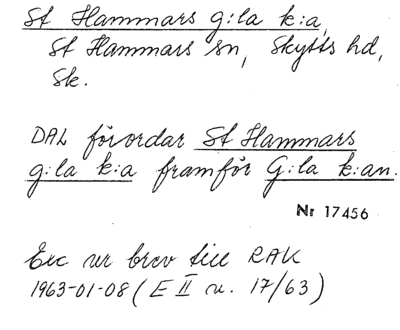 St Hammars g:la k:a,
St Hammars sn, Skytts hd,
Sk.
DAL förordar St Hammars
g:la k:a framför G:la k:an.
Nr 17456
Exc ur brev till RAK
1963-01-08 (E II u. 17/63)